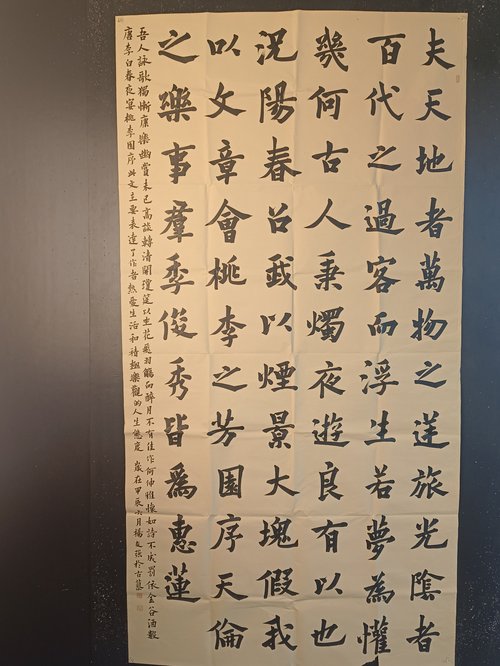 夫天地者萬物之逆旅光陰者
百代之過客而浮生若夢為懽
幾何古人秉燭夜遊良有以也
況陽春召我以煙景大塊假我
以文章會桃李之芳園序天倫
之樂事羣季俊秀皆爲惠蓮
吾人詠歌獨慚康樂幽賞未已高談轉清開瓊筵以坐花飛羽觴而醉月不有佳作何伸雅懷如詩不成罰依金谷酒數
唐李白春夜宴桃李園序此文主要表達了作者熱愛生活和積極樂觀的人生態度 歲在甲辰月楊